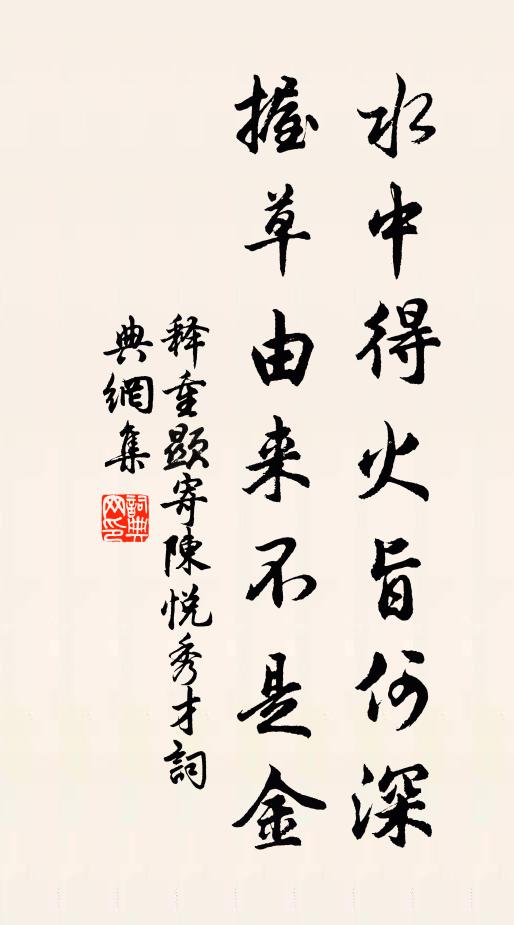 水中得火旨何深
握草由来不是金
释重顯寄陳悦秀才詞
典網集
詞典网印